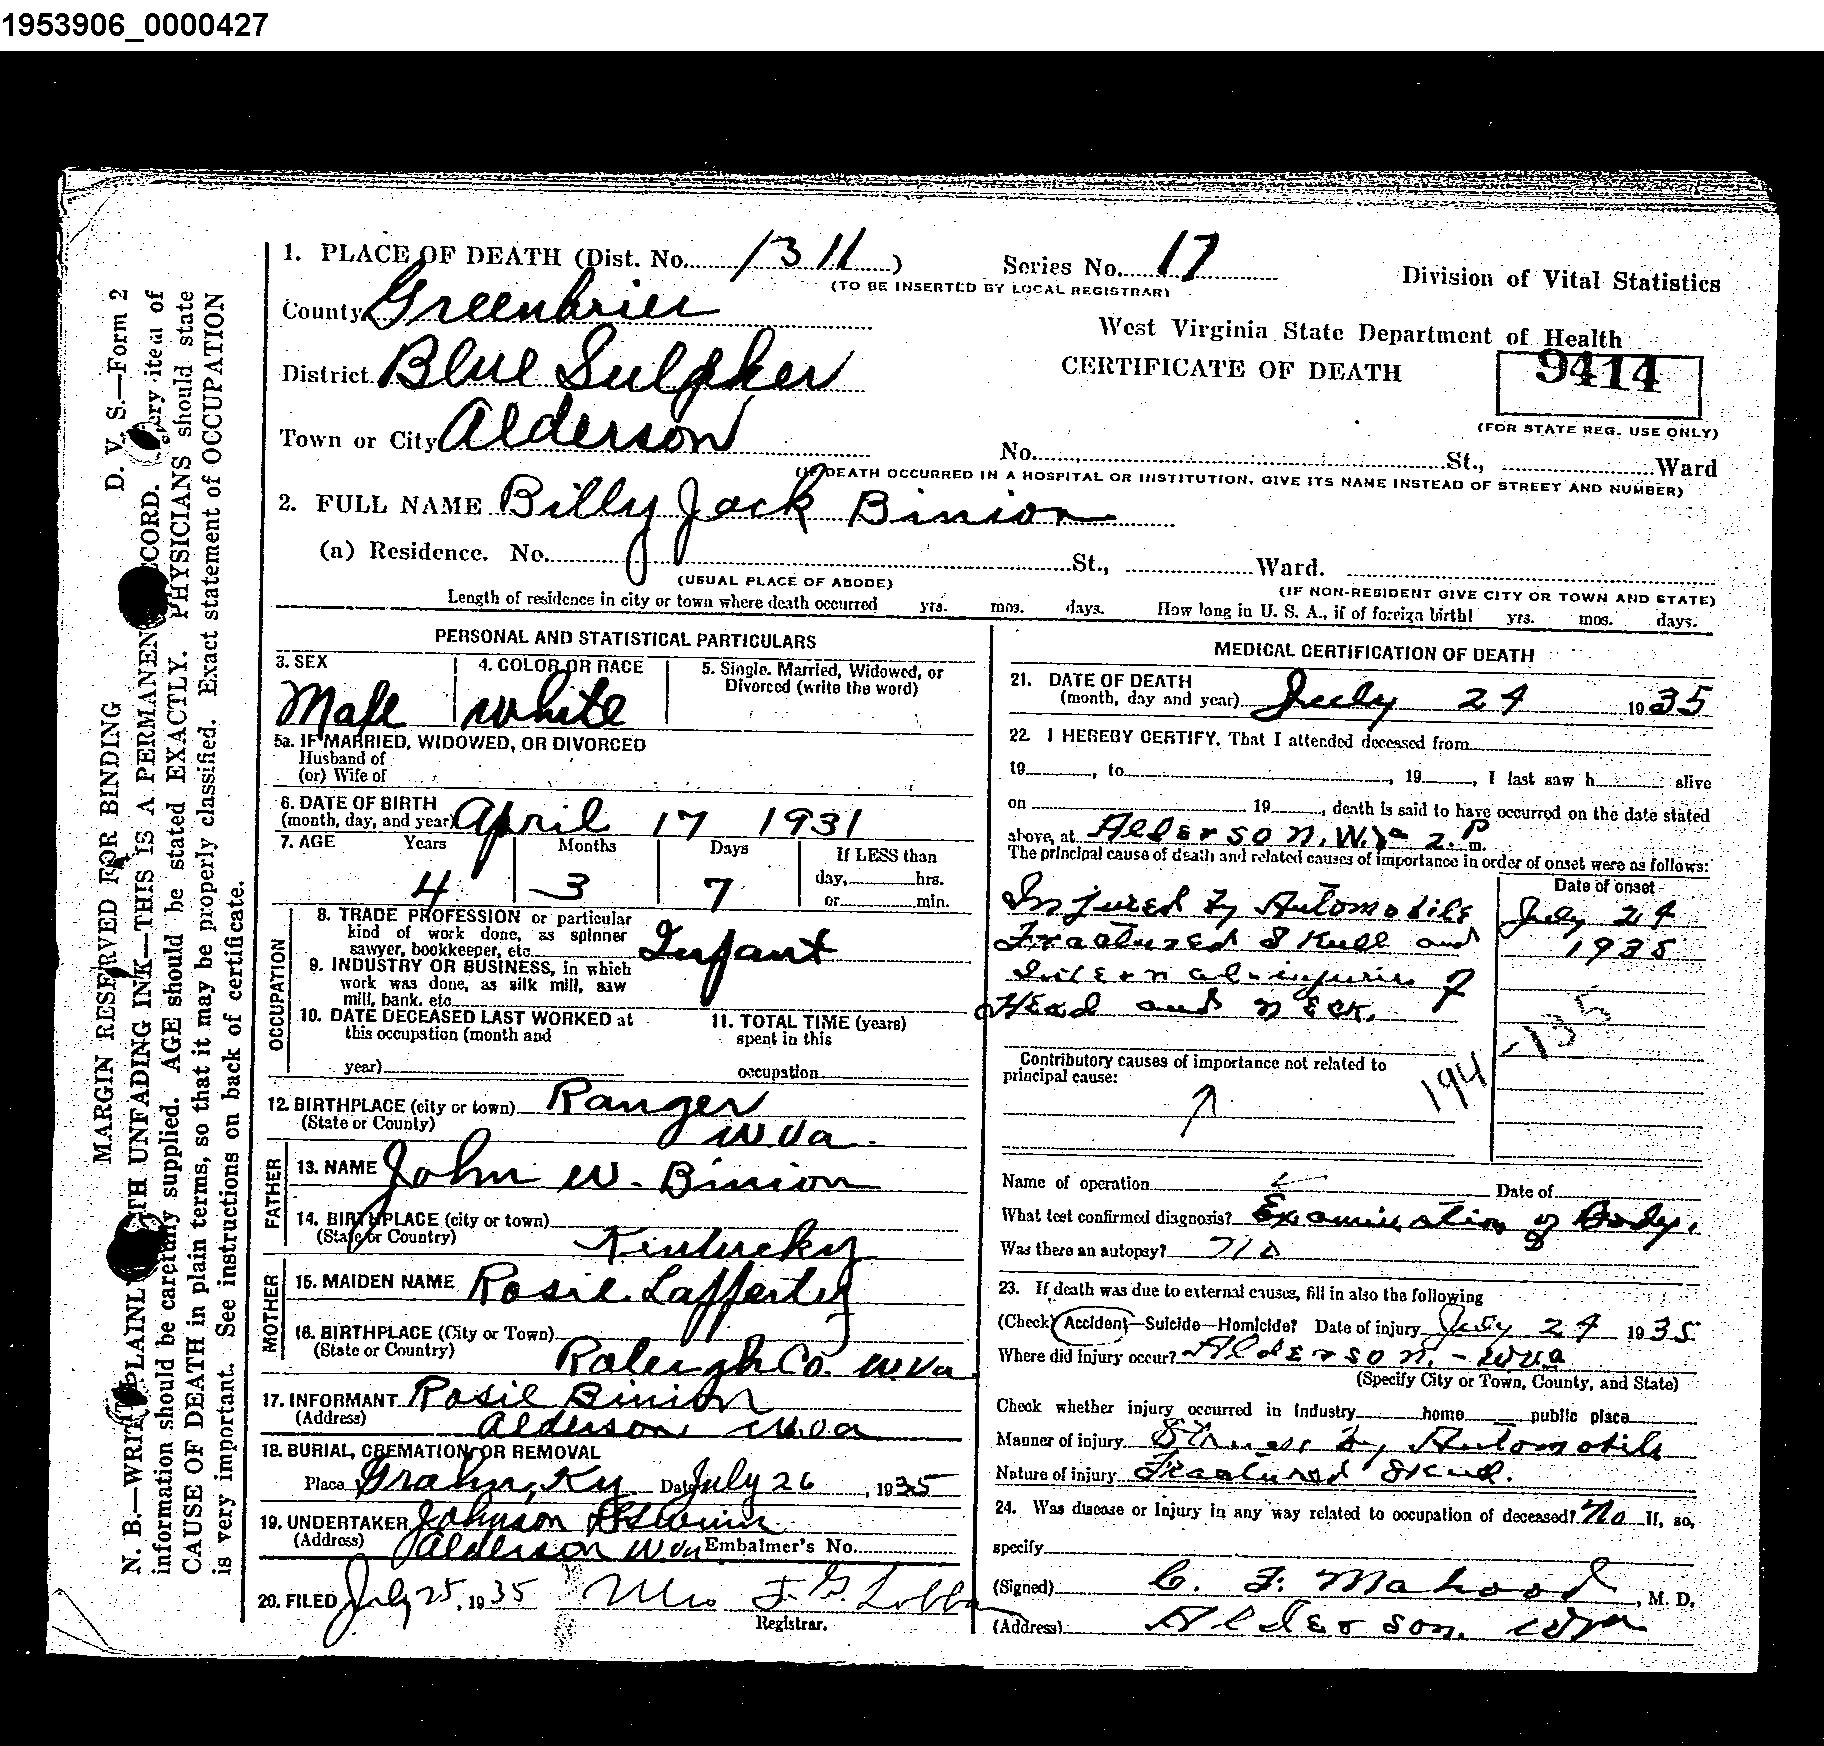 1953906_0000427
1. PLACE OF DEATH (Dist. No. 1311) Series No. 17
(TO BE INSERTED BY LOCAL REGISTRAR)
Division of Vital Statistics
County Greenbrier
West Virginia State Department of Health
District Blue Sulpher
CERTIFICATE OF DEATH
9414
(FOR STATE REG. USE ONLY)
Town or City Alderson
No. St., Ward
(IF DEATH OCCURRED IN A HOSPITAL OR INSTITUTION, GIVE ITS NAME INSTEAD OF STREET AND NUMBER)
2. FULL NAME Billy Jack Binion
(a) Residence. No. St., Ward.
(USUAL PLACE OF ABODE) (IF NON-RESIDENT GIVE CITY OR TOWN AND STATE)
Length of residence in city or town where death occurred yrs. mos. days. How long in U. S. A., if of foreign birth! yrs. mos. days.
D. V. S.—Form 2
MARGIN RESERVED FOR BINDING
N. B.—WRITE PLAINLY WITH UNFADING INK—THIS IS A PERMANENT RECORD. Every item of
information should be carefully supplied. AGE should be stated EXACTLY. PHYSICIANS should state
CAUSE OF DEATH in plain terms, so that it may be properly classified. Exact statement of OCCUPATION
is very important. See instructions on back of certificate.
PERSONAL AND STATISTICAL PARTICULARS
3. SEX 4. COLOR OR RACE 5. Single, Married, Widowed, or
Divorced (write the word)
Male white
5a. IF MARRIED, WIDOWED, OR DIVORCED
Husband of
(or) Wife of
6. DATE OF BIRTH
(month, day, and year) April 17 1931
7. AGE Years Months Days If LESS than
day, hrs.
4 3 7 or min.
OCCUPATION
8. TRADE PROFESSION or particular
kind of work done, as spinner
sawyer, bookkeeper, etc. Infant
9. INDUSTRY OR BUSINESS, in which
work was done, as silk mill, saw
mill, bank, etc
10. DATE DECEASED LAST WORKED at
this occupation (month and
year)
11. TOTAL TIME (years)
spent in this
occupation
12. BIRTHPLACE (city or town) Ranger
(State or County) W Va.
FATHER
13. NAME John W. Binion
14. BIRTHPLACE (city or town)
(State or Country) Kentucky
MOTHER
15. MAIDEN NAME Rosie Lafferty
16. BIRTHPLACE (City or Town)
(State or Country) Raleigh Co. W Va
17. INFORMANT Rosie Binion
(Address) Alderson W Va
18. BURIAL, CREMATION OR REMOVAL
Place Grahn, Ky Date July 26, 1935
19. UNDERTAKER Johnson
(Address) Alderson W Va Embalmer's No.
20. FILED July 25, 1935 Mrs F. G. Lobban
Registrar.
MEDICAL CERTIFICATION OF DEATH
21. DATE OF DEATH
(month, day and year) July 24 1935
22. I HEREBY CERTIFY, That I attended deceased from
19 , to , 19 , I last saw h alive
on 19 , death is said to have occurred on the date stated
above, at Alderson, W. Va 2. P m.
The principal cause of death and related causes of importance in order of onset were as follows:
Date of onset
Injured by Automobile July 24
Fractured Skull and 1935
Internal injuries of
Head and neck.
194 -135
Contributory causes of importance not related to
principal cause:
Name of operation Date of
What test confirmed diagnosis? Examination of Body.
Was there an autopsy? no
23. If death was due to external causes, fill in also the following
(Check) Accident—Suicide—Homicide? Date of injury July 24 1935
Where did injury occur? Alderson. - W Va
(Specify City or Town, County, and State)
Check whether injury occurred in Industry home public place
Manner of injury Struck by Automobile
Nature of injury Fractured Skull.
24. Was disease or injury in any way related to occupation of deceased? No If, so,
specify
(Signed) C. F. Mahood, M. D.
(Address) Alderson, W Va